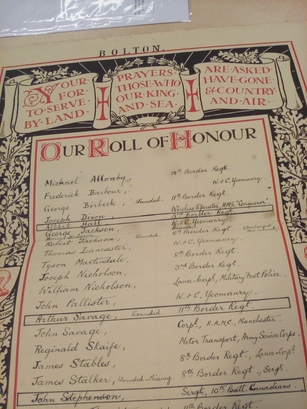 BOLTON.
YOUR PRAYERS ARE ASKED
FOR THOSE WHO HAVE GONE
TO SERVE OUR KING & COUNTRY
BY LAND AND SEA AND AIR
OUR ROLL OF HONOUR
Michael Allonby, 12th Border Regt.
Frederick Barbour, W & C. Yeomanry.
George Birbeck, Wounded 11th Border Regt
Joseph Dixon
Hall Border Regt
George Jackson, W & C Yeomanry
Robert Jackson, Wounded 6th Border Regt
Thomas Lancaster, W & C. Yeomanry.
Tyson Martindale, 8th Border Regt.
Joseph Nicholson, 3rd Border Regt.
William Nicholson, Lance Corpl, Military Foot Police.
John Pallister, W. & C. Yeomanry.
Arthur Savage, Wounded 11th Border Regt
John Savage, Corpl. R.A.M.C. Manchester.
Reginald Skaife, Motor Transport, Army Service Corps.
James Stables, 8th Border Regt., Lance-Corpl.
James Stalker, Wounded Missing 8th Border Regt., Sergt.
John Stephenson, Sergt, 10th Batt. Canadians.
Border Regt.